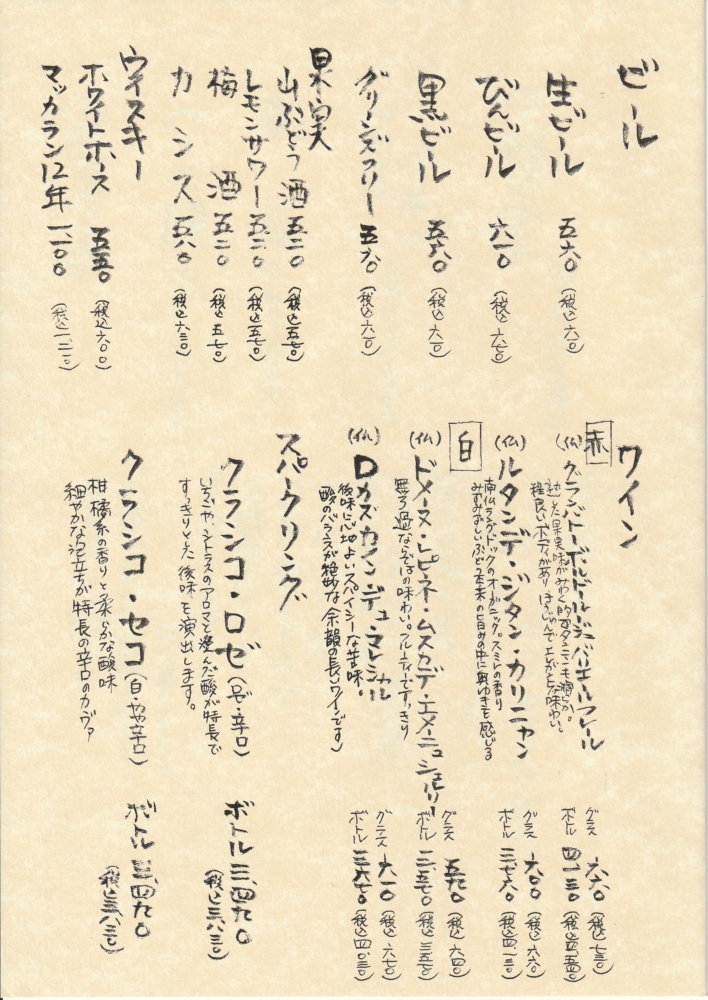 ビール
生ビール 五六〇 (税込六一〇)
びんビール 六一〇 (税込六七〇)
黒ビール 五六〇 (税込六一〇)
グリーンズフリー 五六〇 (税込六一〇)
果実
山ぶどう酒 五二〇 (税込五七〇)
レモンサワー 五二〇 (税込五七〇)
梅酒 五二〇 (税込五七〇)
カシス 五八〇 (税込六三〇)
ウイスキー
ホワイトホース 五五〇 (税込六〇〇)
マッカラン12年 一、一〇〇 (税込一、二一〇)
ワイン
赤
(仏) グランバトーボルドールージュバリエールフレール
熟した果実味がみわく的。タンニンも滑らか。
程良いボディがあり ほうじゅんで エレガントな味わい。
グラス 六六〇 (税込七三〇)
ボトル 四、一三〇 (税込四、五四〇)
(仏) ルタンデ・ジタン・カリニャン
南仏ラングドックのオーガニック。スミレの香り
みずみずしいぶどう本来の旨みの中に奥ゆきを感じる
グラス 六〇〇 (税込六六〇)
ボトル 三、七六〇 (税込四、一三〇)
白
(仏) ドメーヌ・レピネ・ムスカデ・エメーニュ シュルリー
無ろ過ならではの味わい。フルーティーですっきり
グラス 五九〇 (税込六四〇)
ボトル 三、二五〇 (税込三、五七〇)
(仏) ロカズカイン・デュ・マレシャル
後味に心地よいスパイシーな苦味。
酸のバランスが絶妙な余韻の長いワインです)
グラス 六一〇 (税込六七〇)
ボトル 三、六七〇 (税込四、〇三〇)
スパークリング
クラシコ・ロゼ (ロゼ・辛口)
いちごや、シトラスのアロマと澄んだ酸が特長で
すっきりとした後味を演出します。
ボトル 三、四九〇
(税込三、八三〇)
クラシコ・セコ (白・やや辛口)
柑橘系の香りと柔らかな酸味
細やかな泡立ちが特長の辛口のカヴァ
ボトル 三、四九〇
(税込三、八三〇)